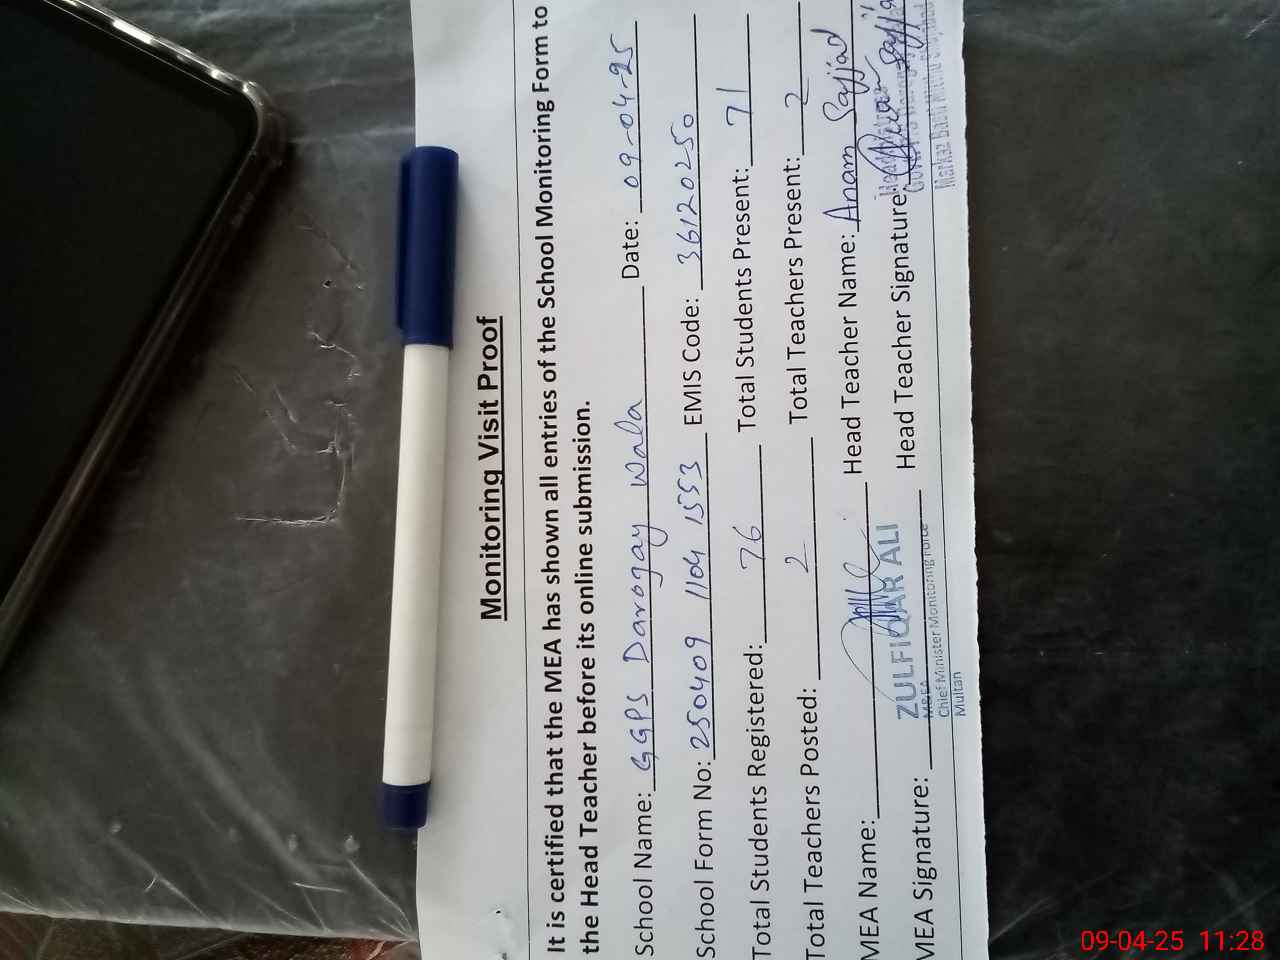 Monitoring Visit Proof
It is certified that the MEA has shown all entries of the School Monitoring Form to
the Head Teacher before its online submission.
School Name: GGPS Darogay Wala Date: 09-04-25
School Form No: 250409 1104 1553 EMIS Code: 36120250
Total Students Registered: 76 Total Students Present: 71
Total Teachers Posted: 2 Total Teachers Present: 2
MEA Name: Head Teacher Name: Anam Sajjad
MEA Signature: Head Teacher Signature:
ZULFIQAR ALI
M&EA
Chief Minister Monitoring Force
Multan
09-04-25 11:28